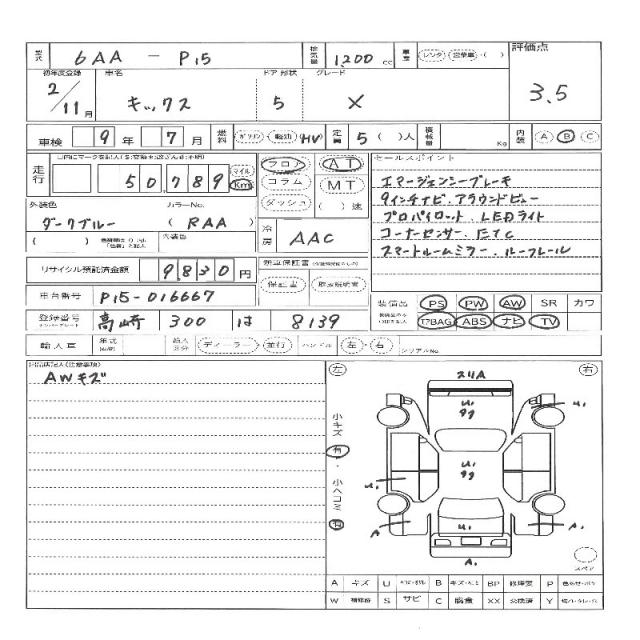 型式 6AA - P15 排気量 1,200 cc 車歴 レンタ 営業車・( ) 評価点
初年度登録 車名 ドア 形状 グレード
2/11月 キックス 5 X 3.5
車検 9年 7月 燃料 ガソリン 軽油 HV 定員 5( )人 積載量 Kg 内装 A B C
走行 50,789 マイル Km フロア AT セールスポイント
コラム MT エマージェンシーブレーキ
ダッシュ ( )速 9インチナビ.アラウンドビュー
外装色 カラーNo. プロパイロット.LEDライト
ダークブルー (RAA) 冷房 AAC コーナーセンサー.ETC
( ) 内装色 スマートルームミラー.ルーフレール
リサイクル預託済金額 9,830円 新車保証書
保証書 取扱説明書
車台番号 P15-016667 装備品 PS PW AW SR カワ
登録番号 高崎 300 は 8139 ｱBAG ABS ナビ TV
輸入車 年式 輸入区分 ディーラー・並行 ハンドル 左・右 シリアルNo.
AWキズ
左 右
スリA
U1
99
U1
小キズ 有・
U1
99
U1
小ヘコミ 有
A U1 A
A1
スペア
A キズ U B BP 修理要 P
W 補修跡 S サビ C 腐食 XX 交換済 Y